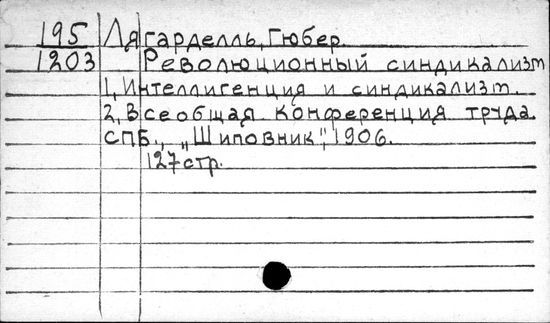 195 Лягарделль, Гюбер.
1203 Революционный синдикализм
1, Интеллигенция и синдикализм.
2, Всеобщая конференция труда.
СПБ., „Шиповник“, 1906.
127 стр.